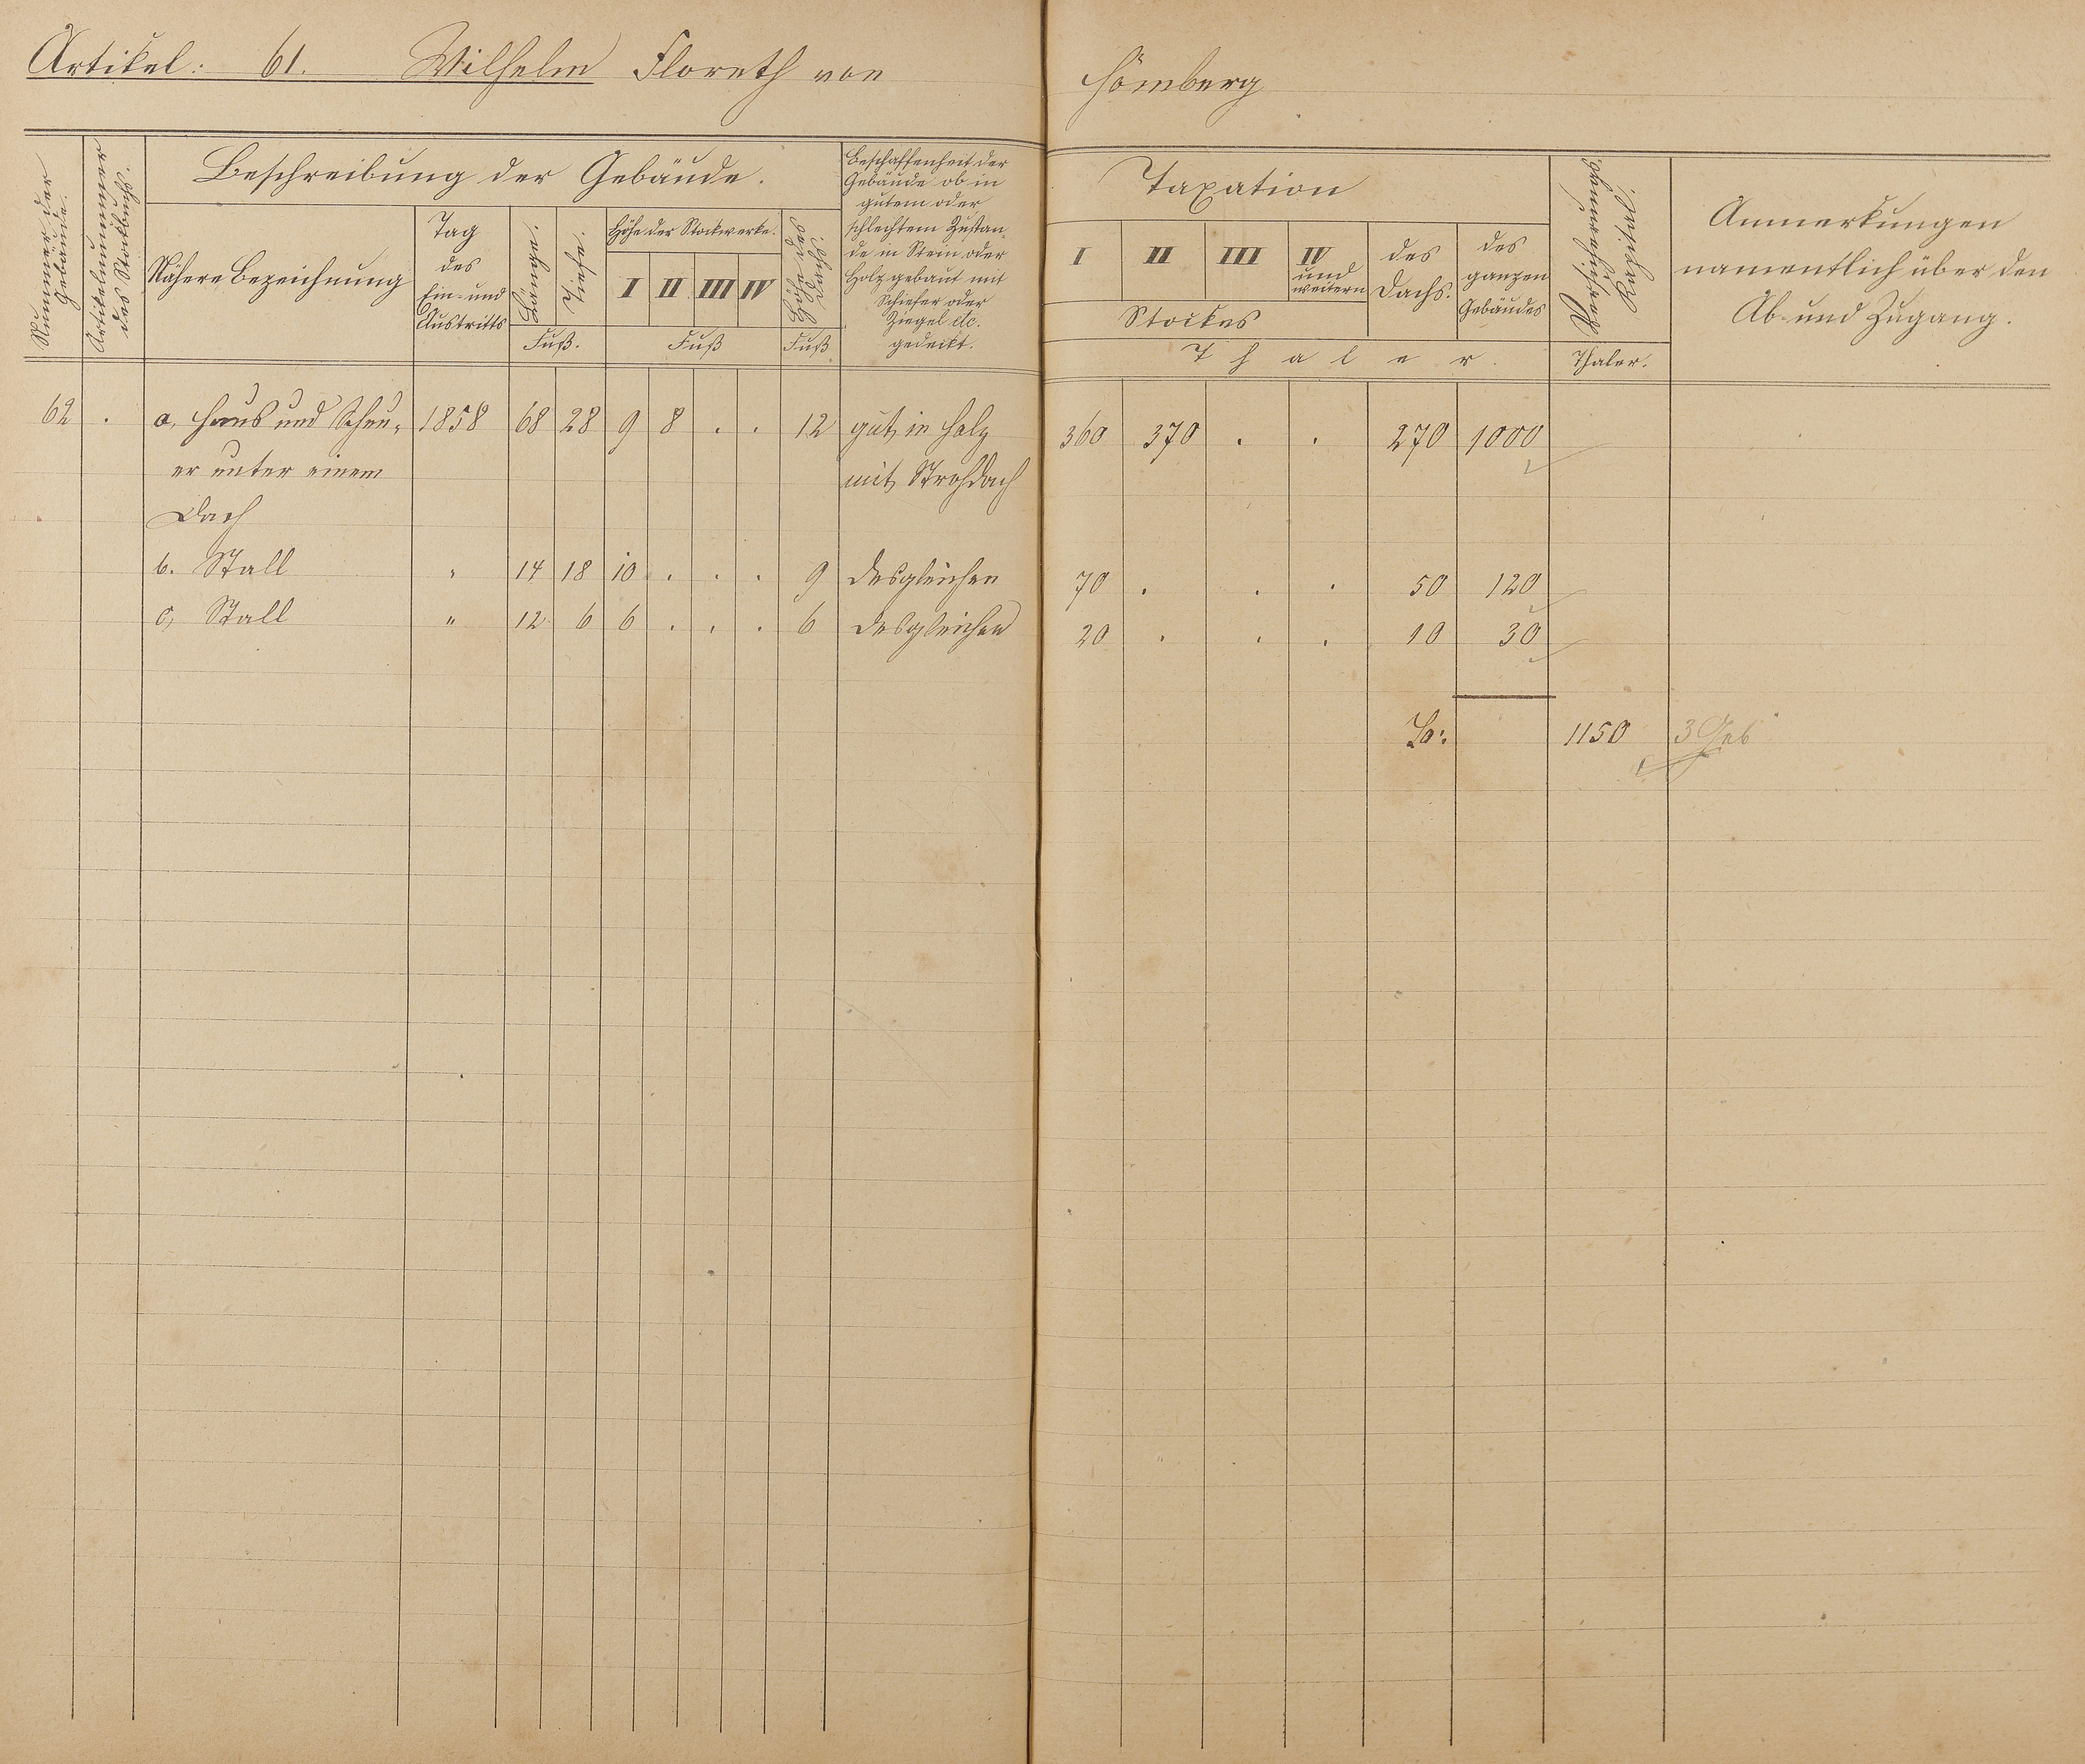 Artikel: 61. Wilhelm Floreth von Hömberg
Nummer der Gebäude.
Artikelnummer des Stockbuchs.
Beschreibung der Gebäude.
Nähere Bezeichnung
Tag
des
Ein- und
Austritts
Länge.
Tiefe.
Fuß.
Höhe der Stockwerke.
I II III IV
Fuß
Höhe des Dachs.
Fuß
Beschaffenheit der
Gebäude ob in
gutem oder
schlechtem Zustan-
de in Stein oder
Holz gebaut mit
Schiefer oder
Ziegel etc.
gedeckt.
Taxation
I II III IV
und
weitern
Stockes
des
Dachs.
des
ganzen
Gebäudes
Thaler.
Kapital.
Thaler.
Anmerkungen
namentlich über den
Ab- und Zugang.
62 . a, Haus und Scheu- 1858 68 28 9 8 . . 12 gut, in Holz 360 370 . . 270 1000
er unter einem mit Strohdach
Dach
b. Stall " 14 18 10 . . . 9 desgleichen 70 . . . 50 120
c, Stall " 12 6 6 . . . 6 desgleichen 20 . . . 10 30
Sa: 1150 3 Geb